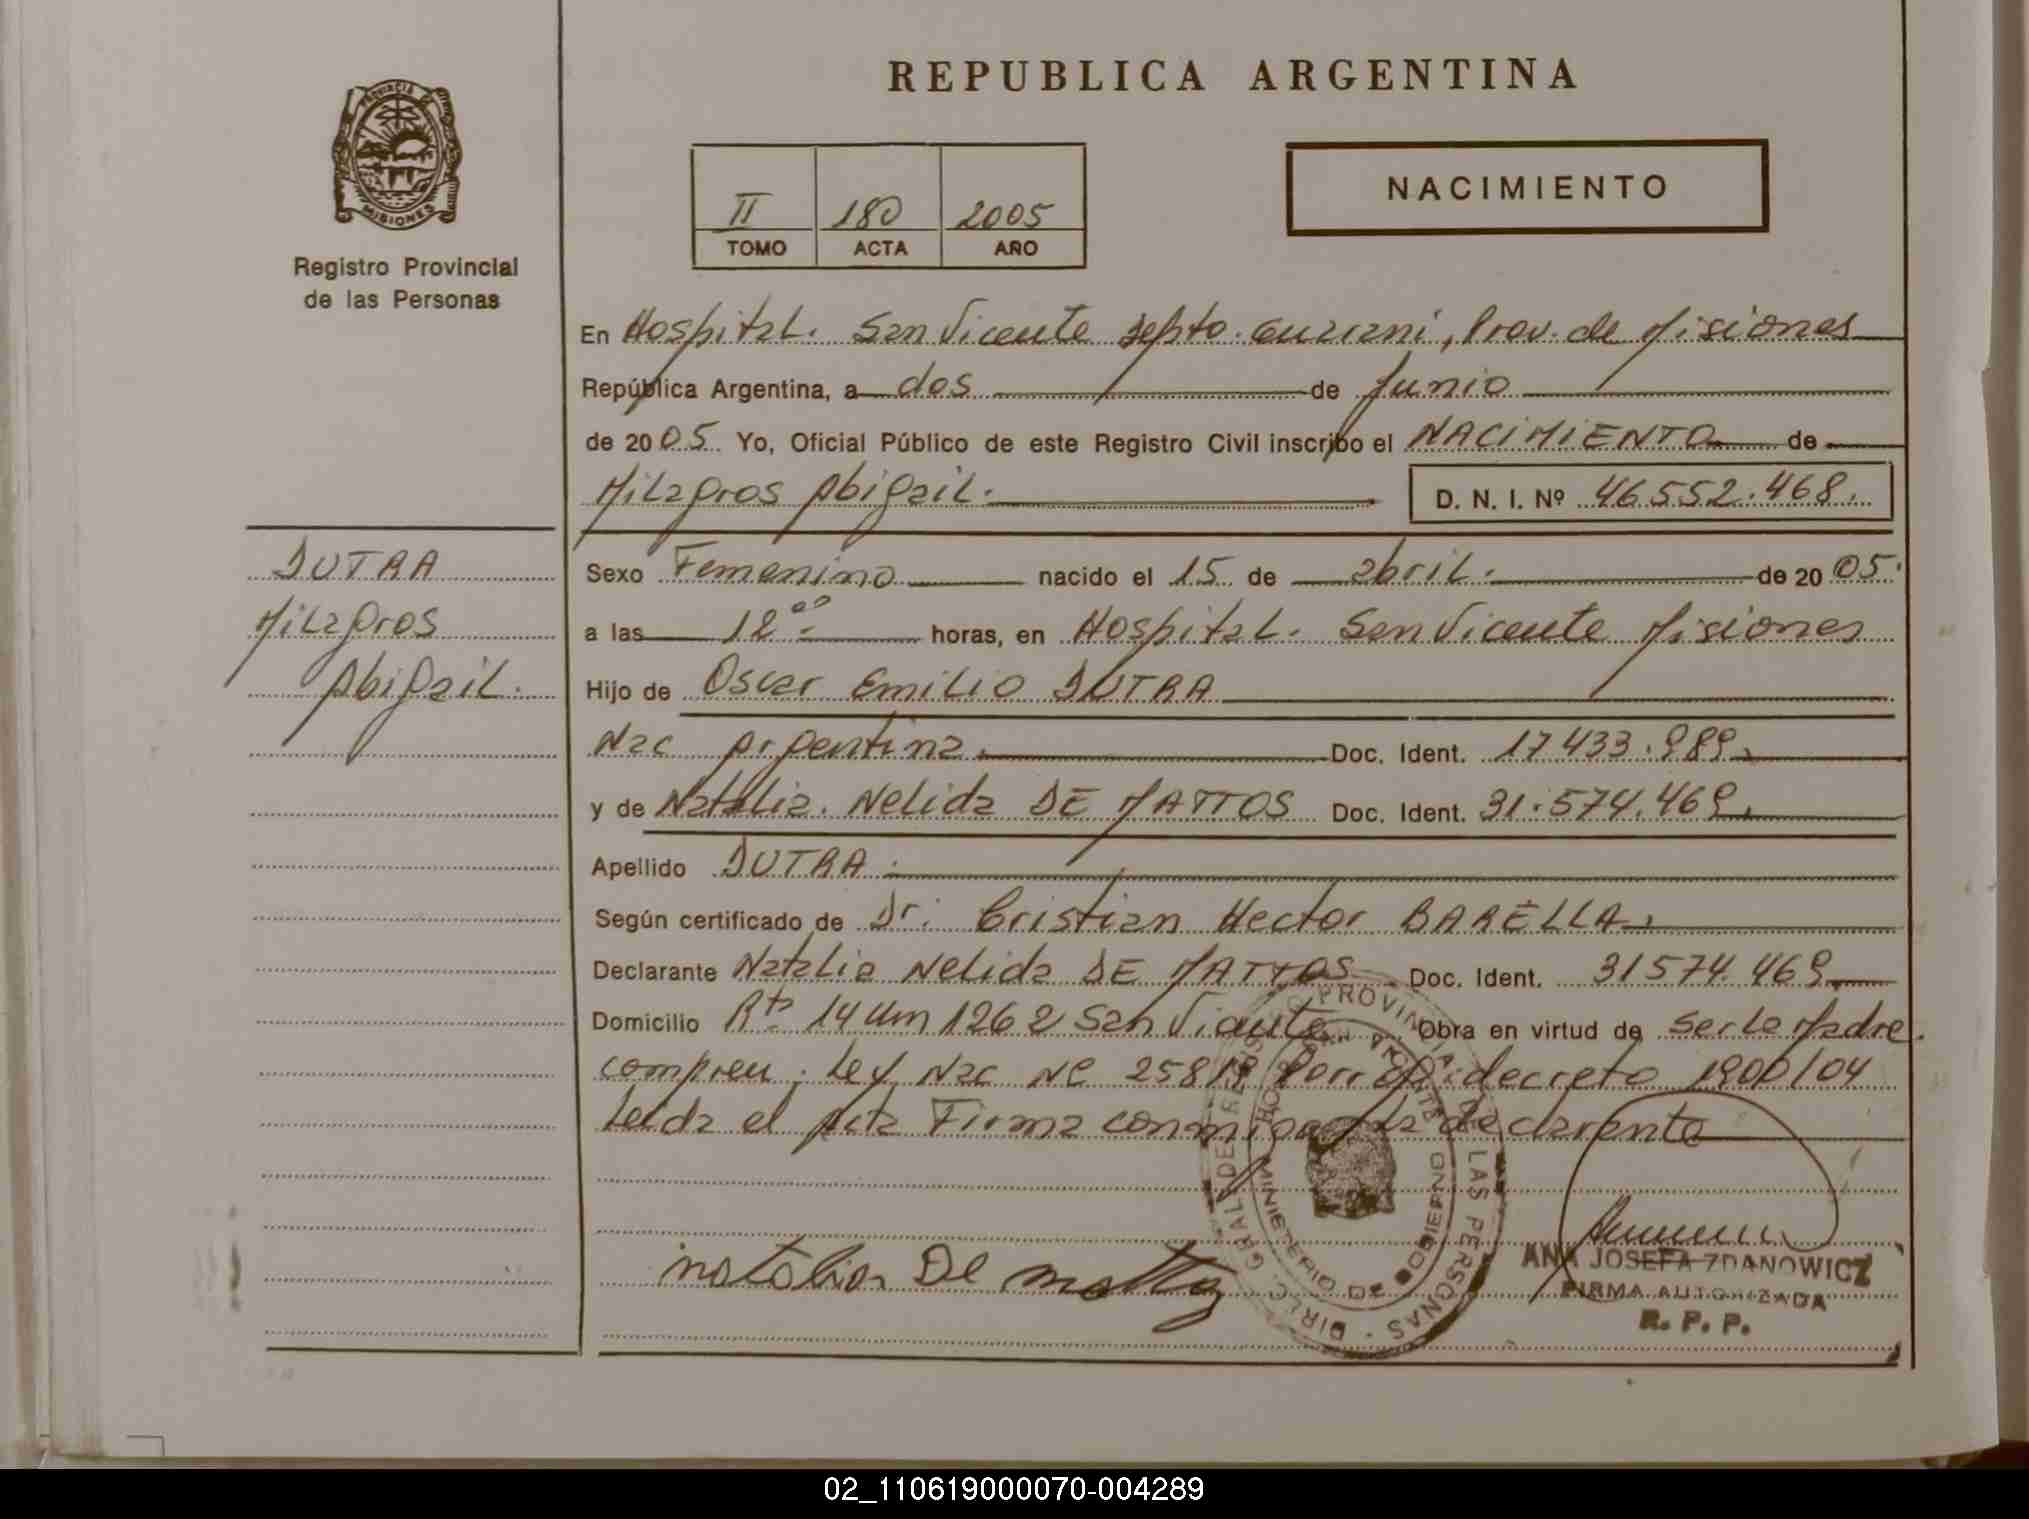 REPUBLICA ARGENTINA
PROVINCIA DE
MISIONES
Registro Provincial
de las Personas
II 180 2005
TOMO ACTA AÑO
NACIMIENTO
En Hospital. San Vicente Depto. Guaraní, Prov. de Misiones
República Argentina, a dos de Junio
de 2005 Yo, Oficial Público de este Registro Civil inscribo el NACIMIENTO de
Milagros Abigail.
D. N. I. Nº 46.552.468.
DUTRA
Milagros
Abigail.
Sexo Femenino nacido el 15 de abril. de 2005.
a las 12 00 horas, en Hospital. San Vicente Misiones
Hijo de Oscar Emilio DUTRA
Nac Argentina. Doc. Ident. 17.433.989
y de Natalia. Nelida DE MATTOS Doc. Ident. 31.574.469
Apellido DUTRA
Según certificado de Dr. Cristian Hector BARELLA
Declarante Natalia Nelida DE MATTOS Doc. Ident. 31574.469
Domicilio Rta 14 Km 1262 San Vicente Obra en virtud de ser la Madre.
compren. Ley Nac Nº 25819 Porr. decreto 1900/04
Leida el Acta Firma conmigo la declarante
natalia De mattos
DIREC. GRAL DE REGISTRO PROVINCIAL DE LAS PERSONAS
MINISTERIO DE GOBIERNO
ANA JOSEFA ZDANOWICZ
FIRMA AUTORIZADA
R. P. P.
02_110619000070-004289